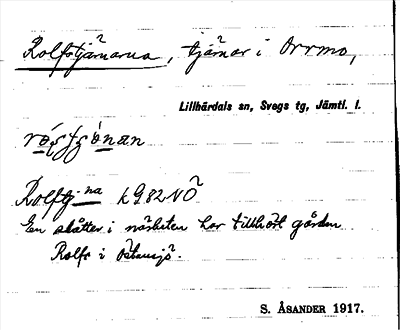 Rolfstjärnarna, tjärnar i Orrmo,
Lillhärdals sn, Svegs tg, Jämtl. l.
Rolftj-na k 982 NÖ
En slåtter i närheten har tillhört gården
Rolfs i Östansjö.
S. ÅSANDER 1917.